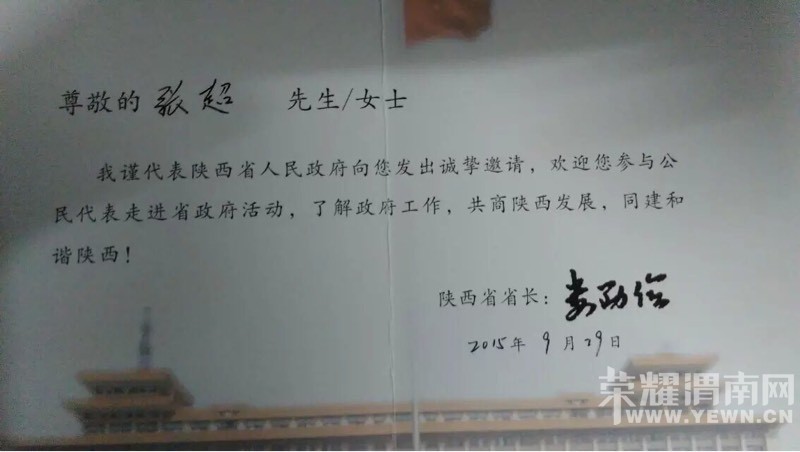 尊敬的 张超 先生/女士
我谨代表陕西省人民政府向您发出诚挚邀请，欢迎您参与公
民代表走进省政府活动，了解政府工作，共商陕西发展，同建和
谐陕西！
陕西省省长：娄勤俭
2015年 9月29日
荣耀渭南网
WWW.YEWN.CN